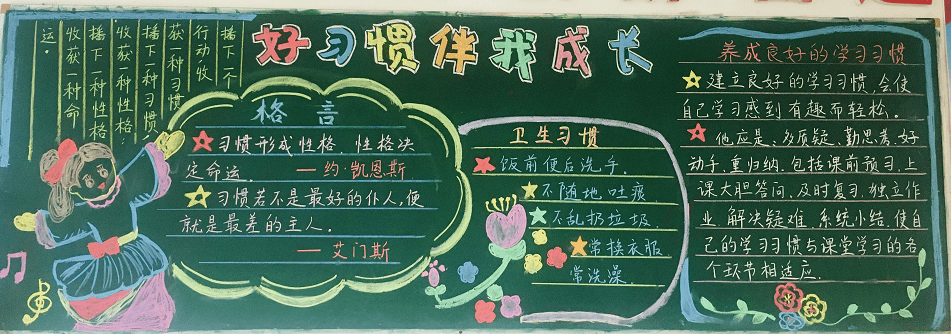 好习惯伴我成长
播下一个
行动收
获一种习惯
播下一种习惯
收获一种性格
播下一种性格
收获一种命
运.
格言
习惯形成性格、性格决
定命运. ——约·凯恩斯
习惯若不是最好的仆人,便
就是最差的主人.
——艾门斯
卫生习惯
饭前便后洗手.
不随地吐痰
不乱扔垃圾.
常换衣服
常洗澡.
养成良好的学习习惯
建立良好的学习习惯,会使
自己学习感到有趣而轻松。
他应是、多质疑、勤思考、好
动手、重归纳,包括课前预习、上
课大胆答问、及时复习、独立作
业、解决疑难、系统小结,使自
己的学习习惯与课堂学习的各
个环节相适应.